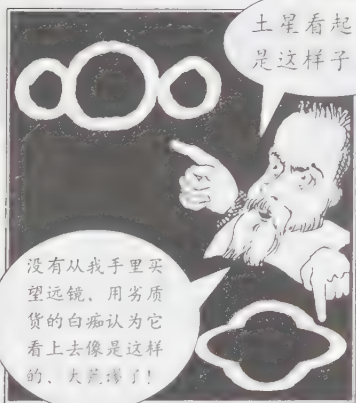 土星看起
是这样子
没有从我手里买
望远镜，用劣质
货的白痴认为它
看上去像是这样
的，大荒谬了！